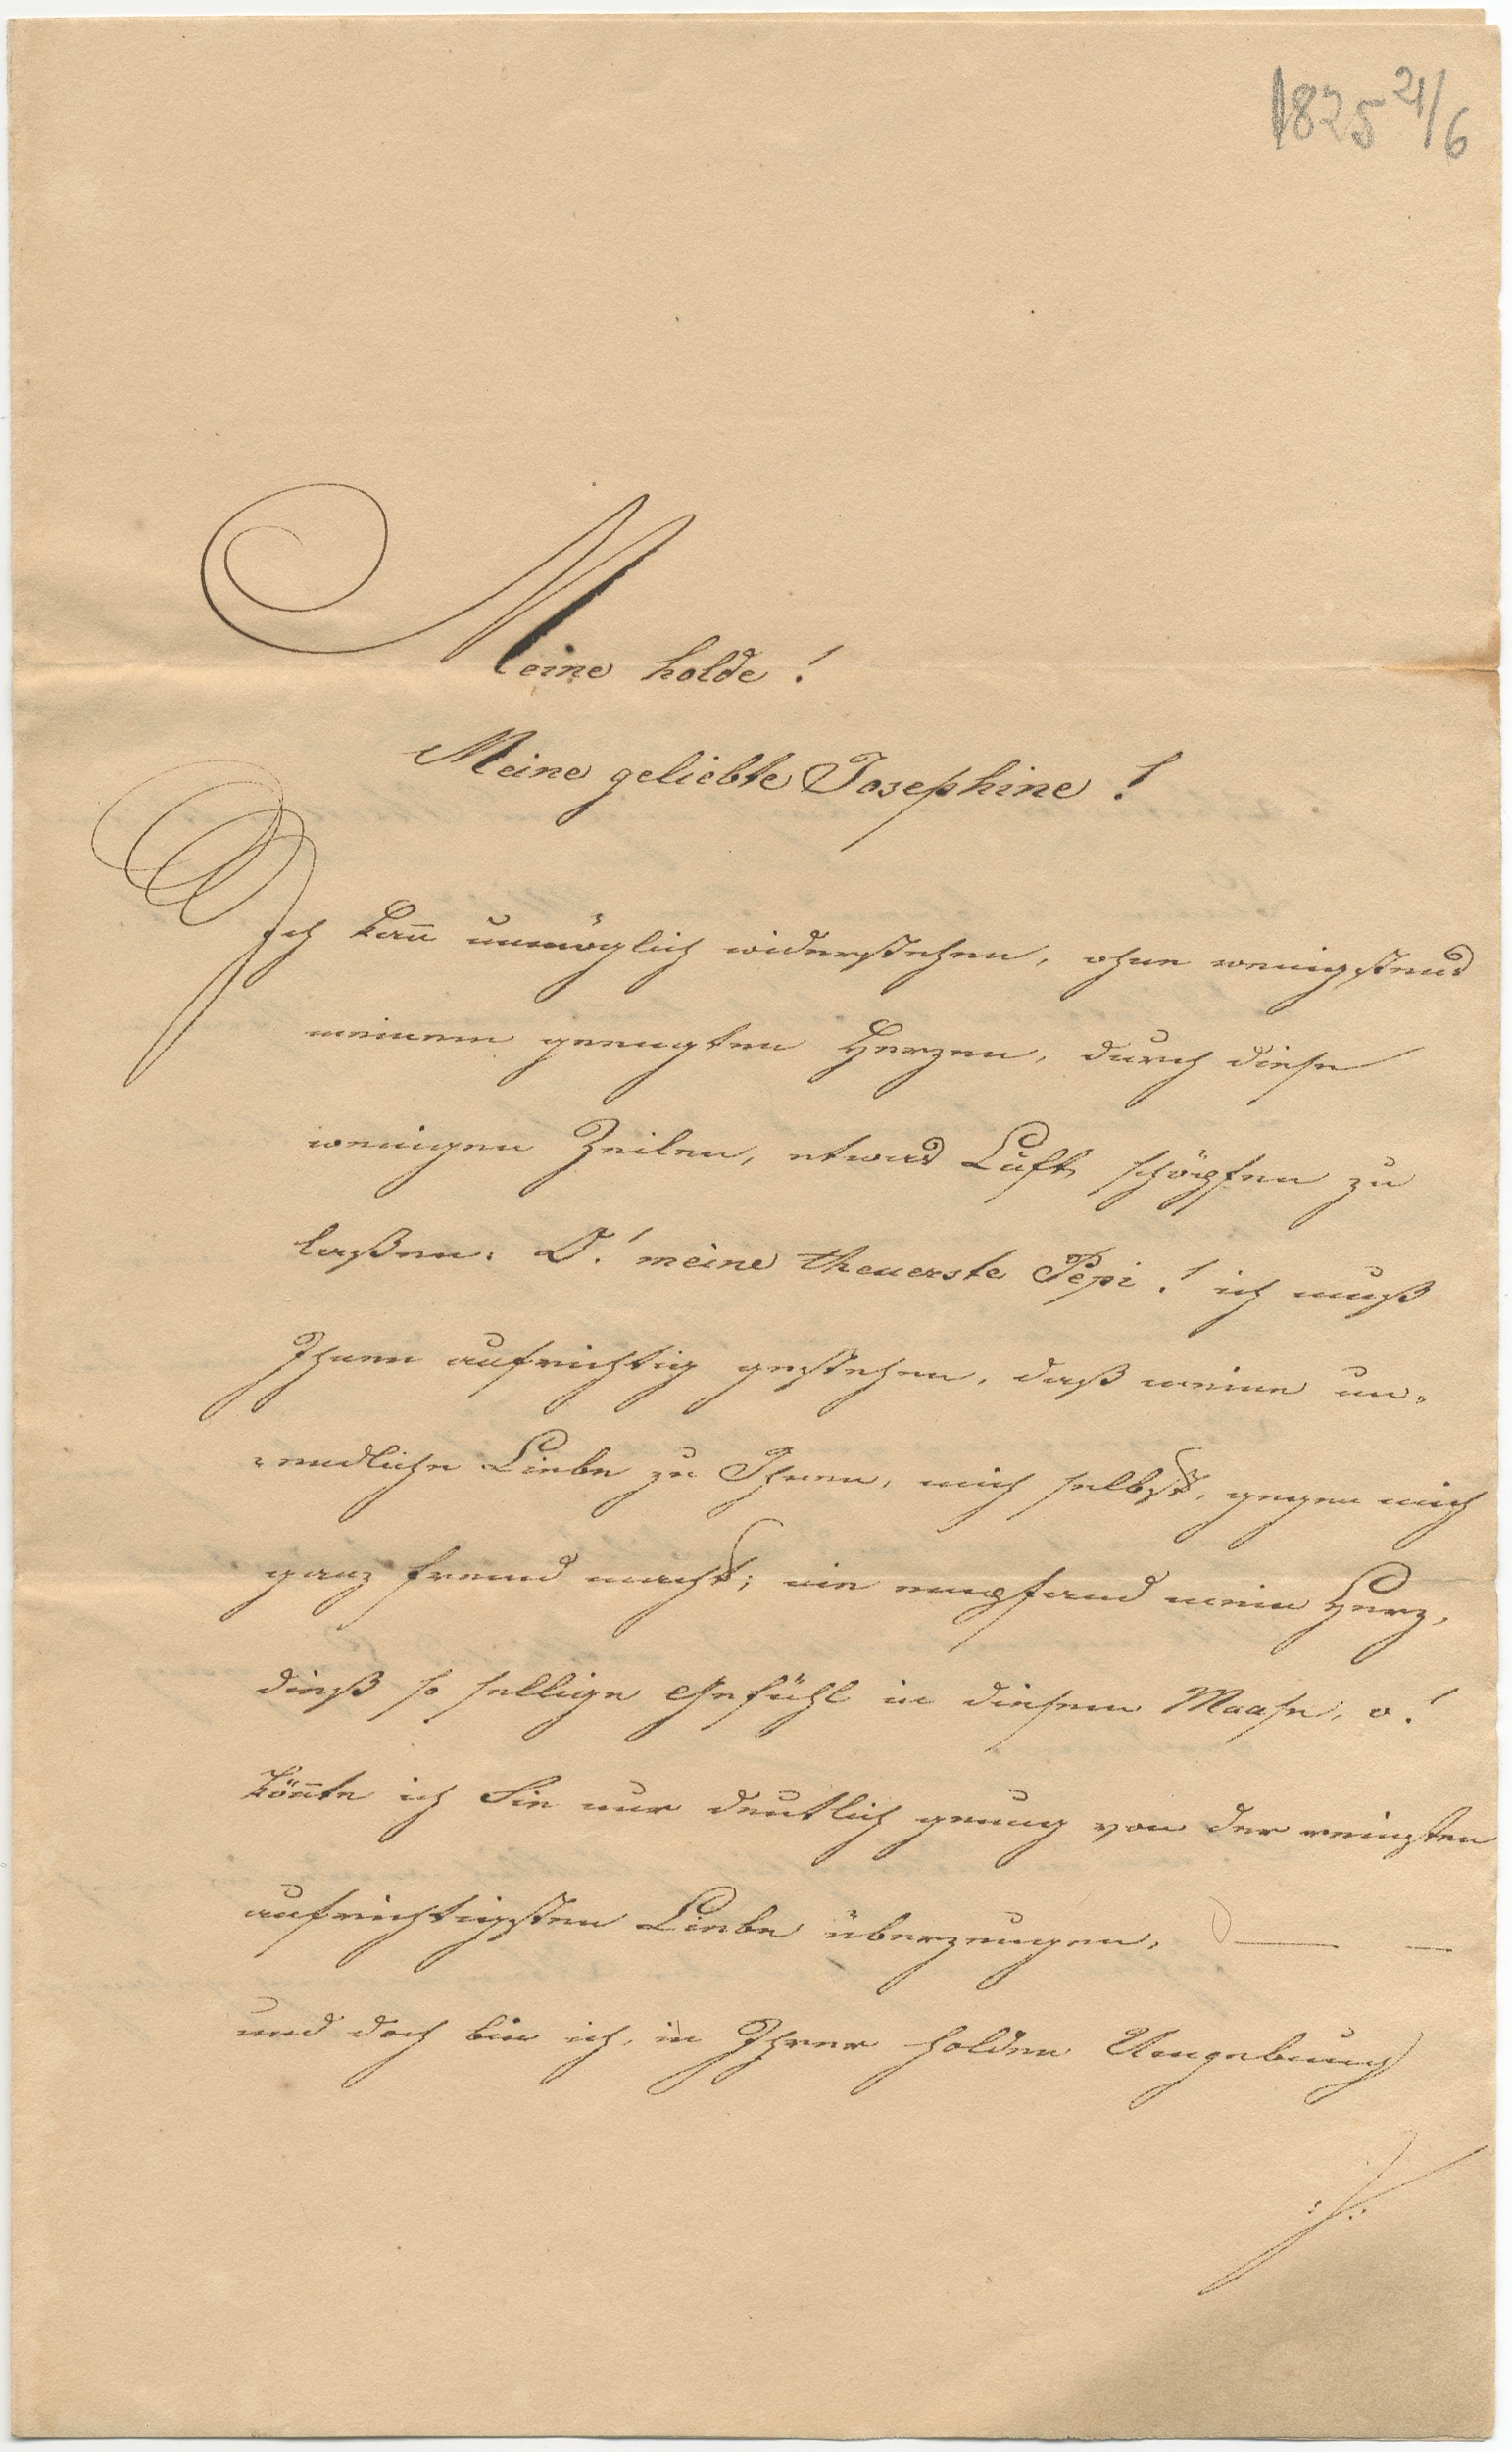 1825 21/6
Meine holde!
Meine geliebte Josephine!
Ich kan̅ unmöglich widerstehen, ohne wenigstens
meinem geengten Herzen, durch diese
wenigen Zeilen, etwas Luft schöpfen zu
laßen. O! meine theuerste Pepi! ich muß
Ihnen aufrichtig gestehen, daß meine un„
„endliche Liebe zu Ihnen, mich selbst, gegen mich
ganz fremd macht; nie empfand mein Herz,
dieß so sellige Gefühl in diesem Maase, o!
kön̅te ich Sie nur deutlich genug von der reinsten
aufrichtigsten Liebe überzeugen, — —
und doch bin ich, in Ihrer holden Umgebung